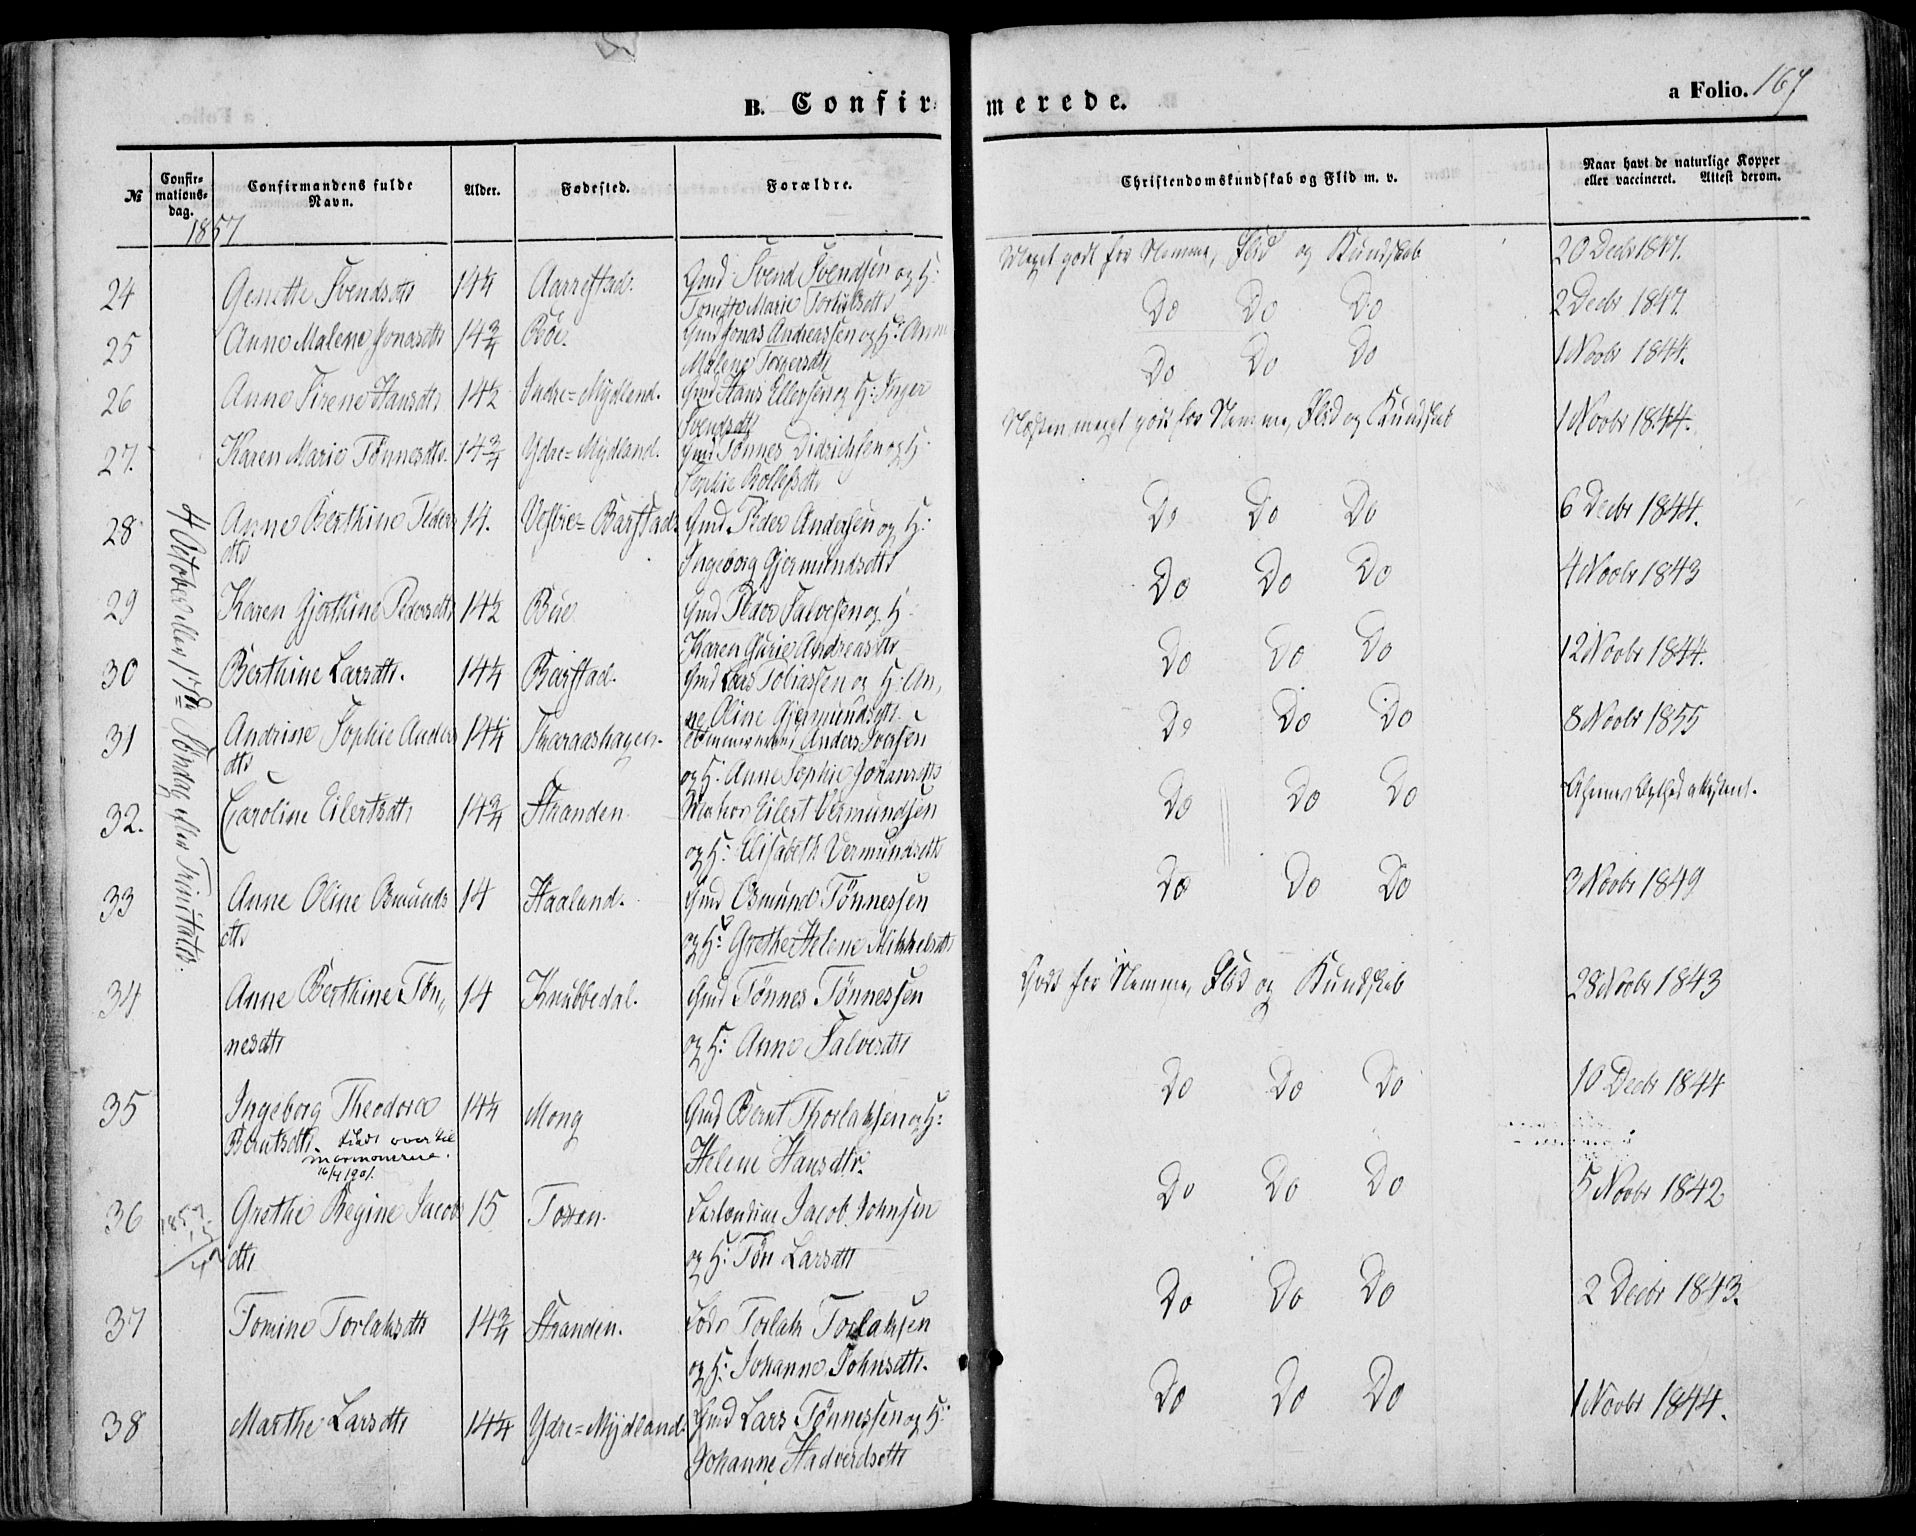 B. Confirmerede.
a Folio. 167
№
Confirmationsdag.
Confirmandens fulde Navn.
Alder.
Fødested.
Forældre.
Christendomskundskab og Flid m. v.
Naar havt de naturlige Kopper
eller vaccineret. Attest derom.
1857
4 October eller 17de Søndag efter Trinitatis.
24 Genette Svendsdtr 14¼ Aarrestad. Gmd Svend Svendsen og H:
Tonette Marie Torkildsdtr
Meget godt for Nemme, Flid og Kundskab 20 Decbr 1847.
25 Anne Malene Jonasdtr 14¾ Bøe. Gmd Jonas Andreassen og H: Anne
Malene Tollersdtr
Do Do Do 2 Decbr 1847.
26 Anne Sirene Hansdtr 14½ Indre=Mydland. Gmd Hans Ellevsen og H: Inger
Svendsdtr
Do Do Do 1 Novbr 1844.
27. Karen Marie Tønnesdtr. 14¾ Ydre=Mydland. Gmd Tønnes Didrichsen og H:
Sophie Rollefsdtr
Næsten meget godt for Nemme, Flid og Kundskab 1 Novbr 1844.
28 Anne Berthine Peders 14. Vestre=Barstad. Gmd Peder Andersen og H:
dtr Ingeborg Gjermundsdtr
Do Do Do 6 Decbr 1844.
29 Karen Gjerthine Pedersdtr 14½ Bue Gmd Peder Salvesen og H
Karen Gurie Andreasdtr
Do Do Do 4 Novbr 1843
30 Berthine Larsdtr. 14¼ Barstad. Gmd Lars Tobiassen og H: An,
ne Oline Gjermundsdtr
Do Do Do 12 Novbr 1844.
31 Andrine Sophie Anders 14¼ Tharaashagen. Tømmermand Anders Iversen
dtr og H: Anne Sophie Johansdtr
Do Do Do 8 Novbr 1855
32. Caroline Eilertsdtr 14¾ Stranden. Eilert Vermundsen
og H: Elisabeth Vermundsdtr
Do Do Do
33 Anne Oline Osmunds 14 Haaland. Gmd Osmund Tønnessen
dtr og H: Grethe Helene Mikkelsdtr
Do Do Do Novbr 1849
34 Anne Berthine Tøn,, 14 Knubbedal. Gmd Tønnes Tønnessen
nesdtr og H: Anne Salvesdtr
Godt for Nemme, Flid og Kundskab 28 Novbr 1843
35 Ingeborg Theodora 14¼ Mong Gmd Bernt Thorlaksen og H:
Berntsdtr. Helene Hansdtr.
traadt over til
mormonerne.
16/4 1901.
Do Do Do 10 Decbr 1844
36 Grethe Regine Jacobs 15 Toxen. Jacob Johnsen
dtr og H: Tøn Larsdtr
Do Do Do 5 Novbr 1842
37 Tomine Torlaksdtr 14¾ Stranden. Lods Torlak Torlaksen
og H: Johanne Johnsdtr.
Do Do Do 2 Decbr 1843.
38 Marthe Larsdtr 14¼ Ydre=Mydland. Gmd Lars Tønnessen og H:
Johanne Hadverdsdtr
Do Do Do 1 Novbr 1844.